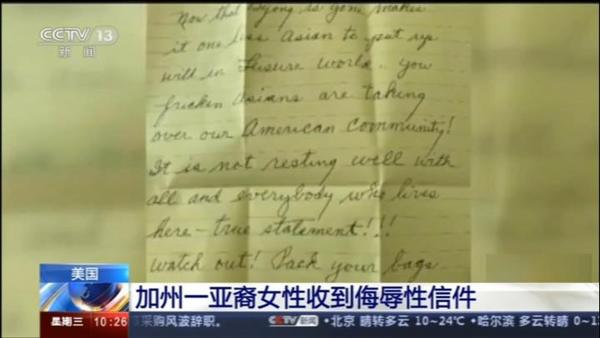 CCTV 13
新闻
Now that Byong is gone makes
it one less Asian to put up
with in Leisure World.. you
fricken Asians are taking
over our American Community!
It is not resting well with
all and everybody who lives
here - true statement!!!
watch out! Pack your bags
美国
加州一亚裔女性收到侮辱性信件
星期三 10:26 采购风波辞职。 CCTV 新闻 •北京 晴转多云 10~24℃ •哈尔滨 多云转晴 0~1